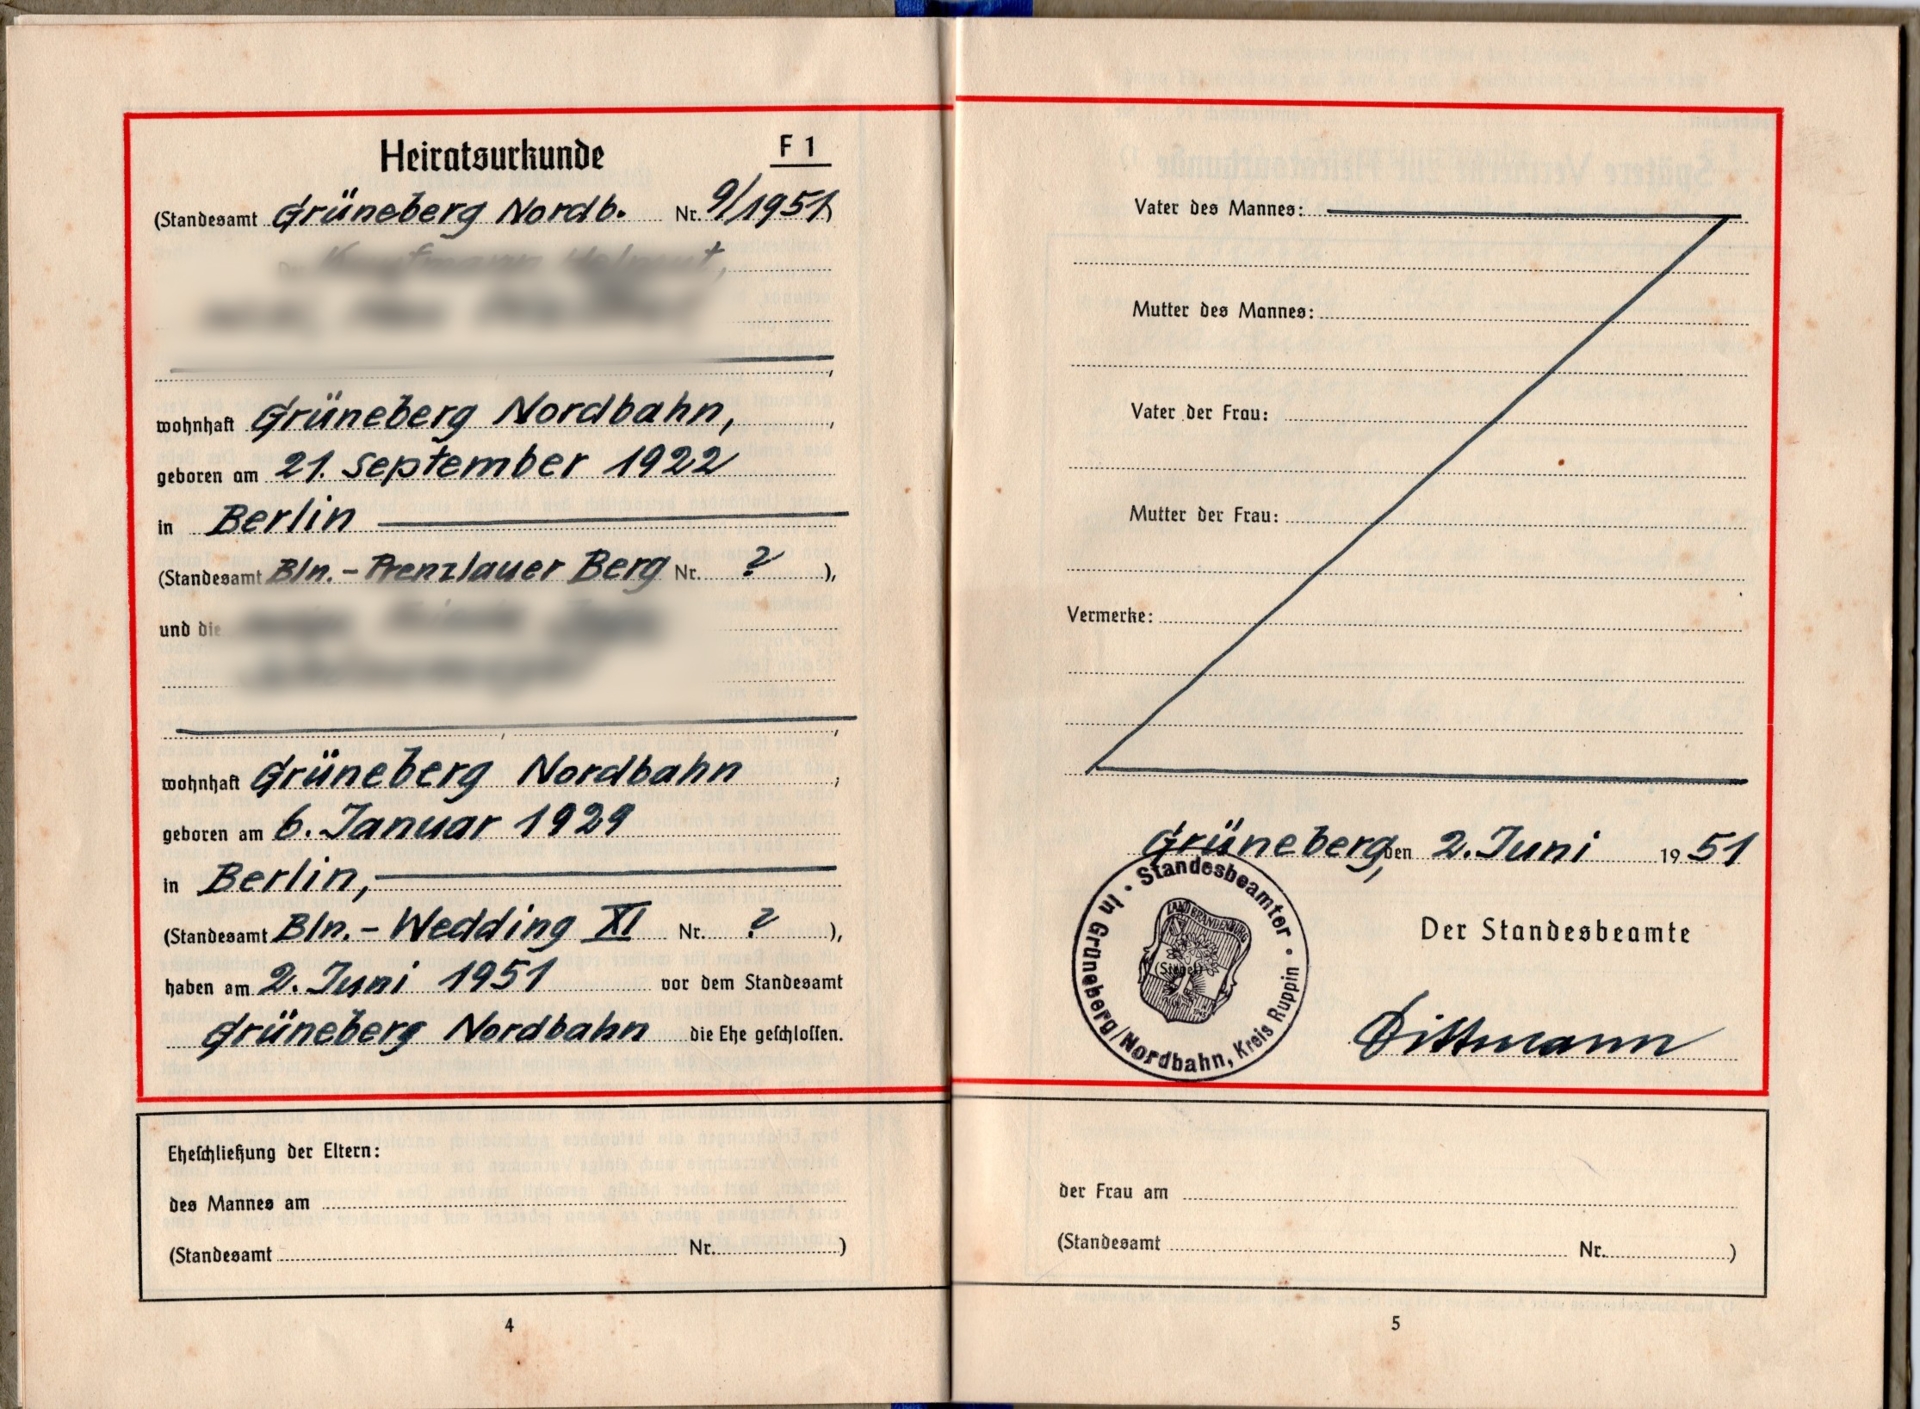 Heiratsurkunde F 1
(Standesamt Grüneberg Nordb. Nr. 9/1951)
wohnhaft Grüneberg Nordbahn,
geboren am 21. September 1922
in Berlin
(Standesamt Bln.-Prenzlauer Berg Nr. ? ),
und die
wohnhaft Grüneberg Nordbahn,
geboren am 6. Januar 1929
in Berlin,
(Standesamt Bln.-Wedding XI Nr. ? ),
haben am 2. Juni 1951 vor dem Standesamt
Grüneberg Nordbahn die Ehe geschlossen.
Eheschließung der Eltern:
des Mannes am
(Standesamt Nr. )
4
Vater des Mannes:
Mutter des Mannes:
Vater der Frau:
Mutter der Frau:
Vermerke:
Grüneberg, den 2. Juni 1951
Standesbeamter
in Grüneberg/Nordbahn, Kreis Ruppin
LAND BRANDENBURG
(Siegel)
Der Standesbeamte
Dittmann
der Frau am
(Standesamt Nr. )
5